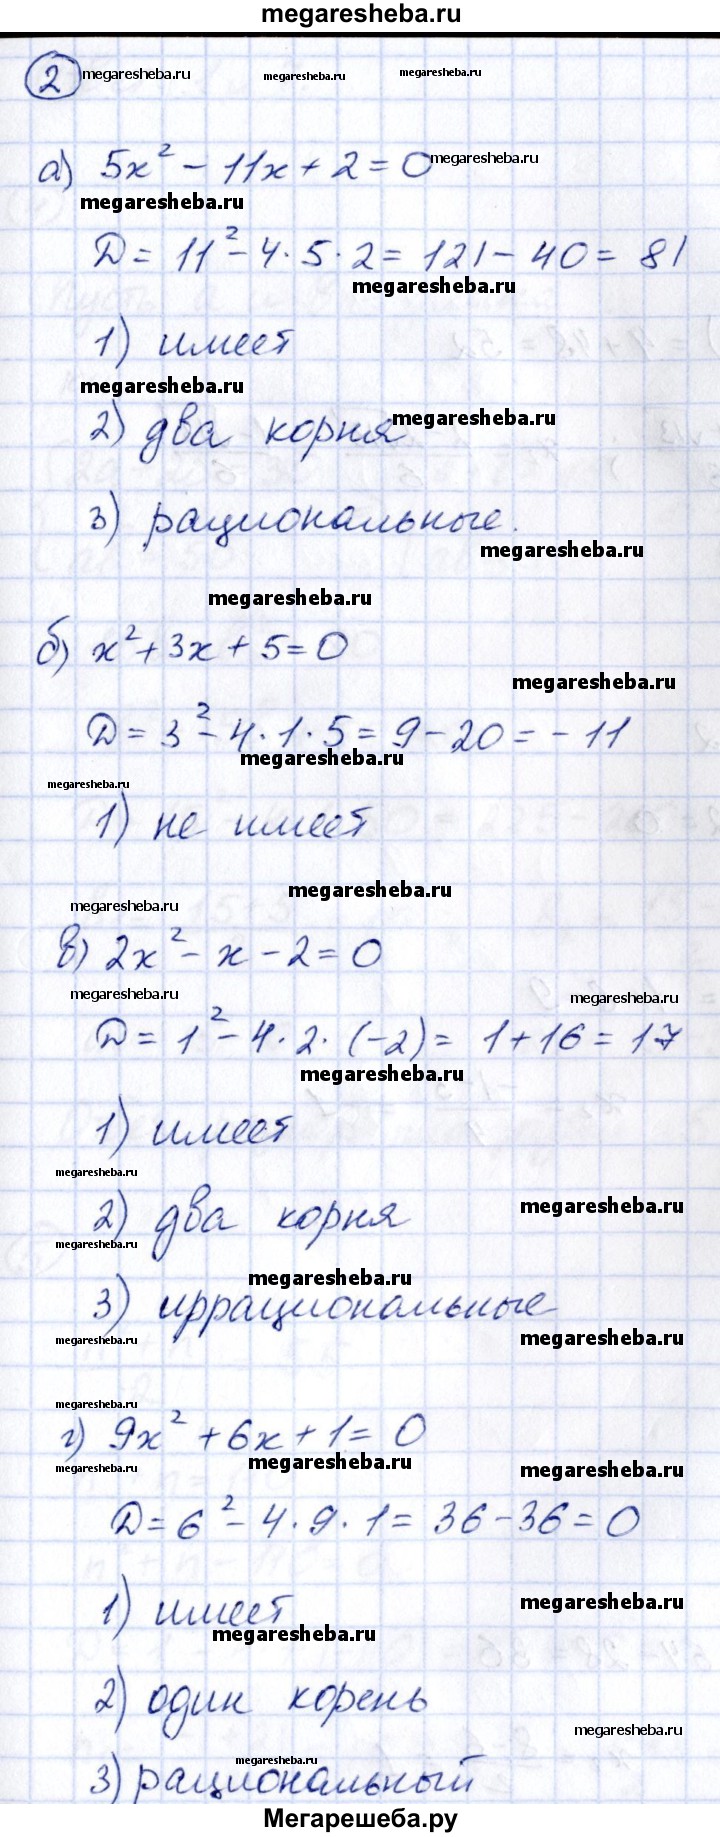 megaresheba.ru
2 megaresheba.ru megaresheba.ru megaresheba.ru
а) 5x² - 11x + 2 = 0 megaresheba.ru
megaresheba.ru
D = 11² - 4 · 5 · 2 = 121 - 40 = 81
megaresheba.ru
1) имеет
megaresheba.ru
2) два корня megaresheba.ru
3) рациональные.
megaresheba.ru
megaresheba.ru
б) x² + 3x + 5 = 0
megaresheba.ru
D = 3² - 4 · 1 · 5 = 9 - 20 = - 11
megaresheba.ru
megaresheba.ru
1) не имеет
megaresheba.ru
megaresheba.ru
в) 2x² - x - 2 = 0
megaresheba.ru megaresheba.ru
D = 1² - 4 · 2 · (-2) = 1 + 16 = 17
megaresheba.ru
1) имеет
megaresheba.ru
2) два корня megaresheba.ru
megaresheba.ru
megaresheba.ru
3) иррациональные
megaresheba.ru megaresheba.ru
megaresheba.ru
г) 9x² + 6x + 1 = 0
megaresheba.ru megaresheba.ru megaresheba.ru
D = 6² - 4 · 9 · 1 = 36 - 36 = 0
1) имеет megaresheba.ru
megaresheba.ru
2) один корень
megaresheba.ru
megaresheba.ru
3) рациональный
Мегарешеба.ру